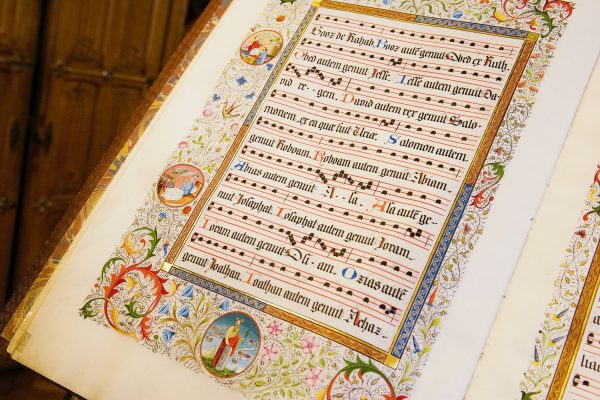 Booz de Rahab. Booz autē genuit Obed ex Ruth.
Obed autem genuit Jesse. Jesse autem genuit Da
vid re - gem. David autem rex genuit Salo
monem, ex ea quæ fuit Uriæ. Salomon autem
genuit Roboam. Roboam autem genuit Abiam.
Abias autem genuit A - sa. Asa autē ge
nuit Josaphat. Josaphat autem genuit Joram.
Joram autem genuit Ozi - am. Ozias autē
genuit Joathan. Joathan autem genuit Achaz.